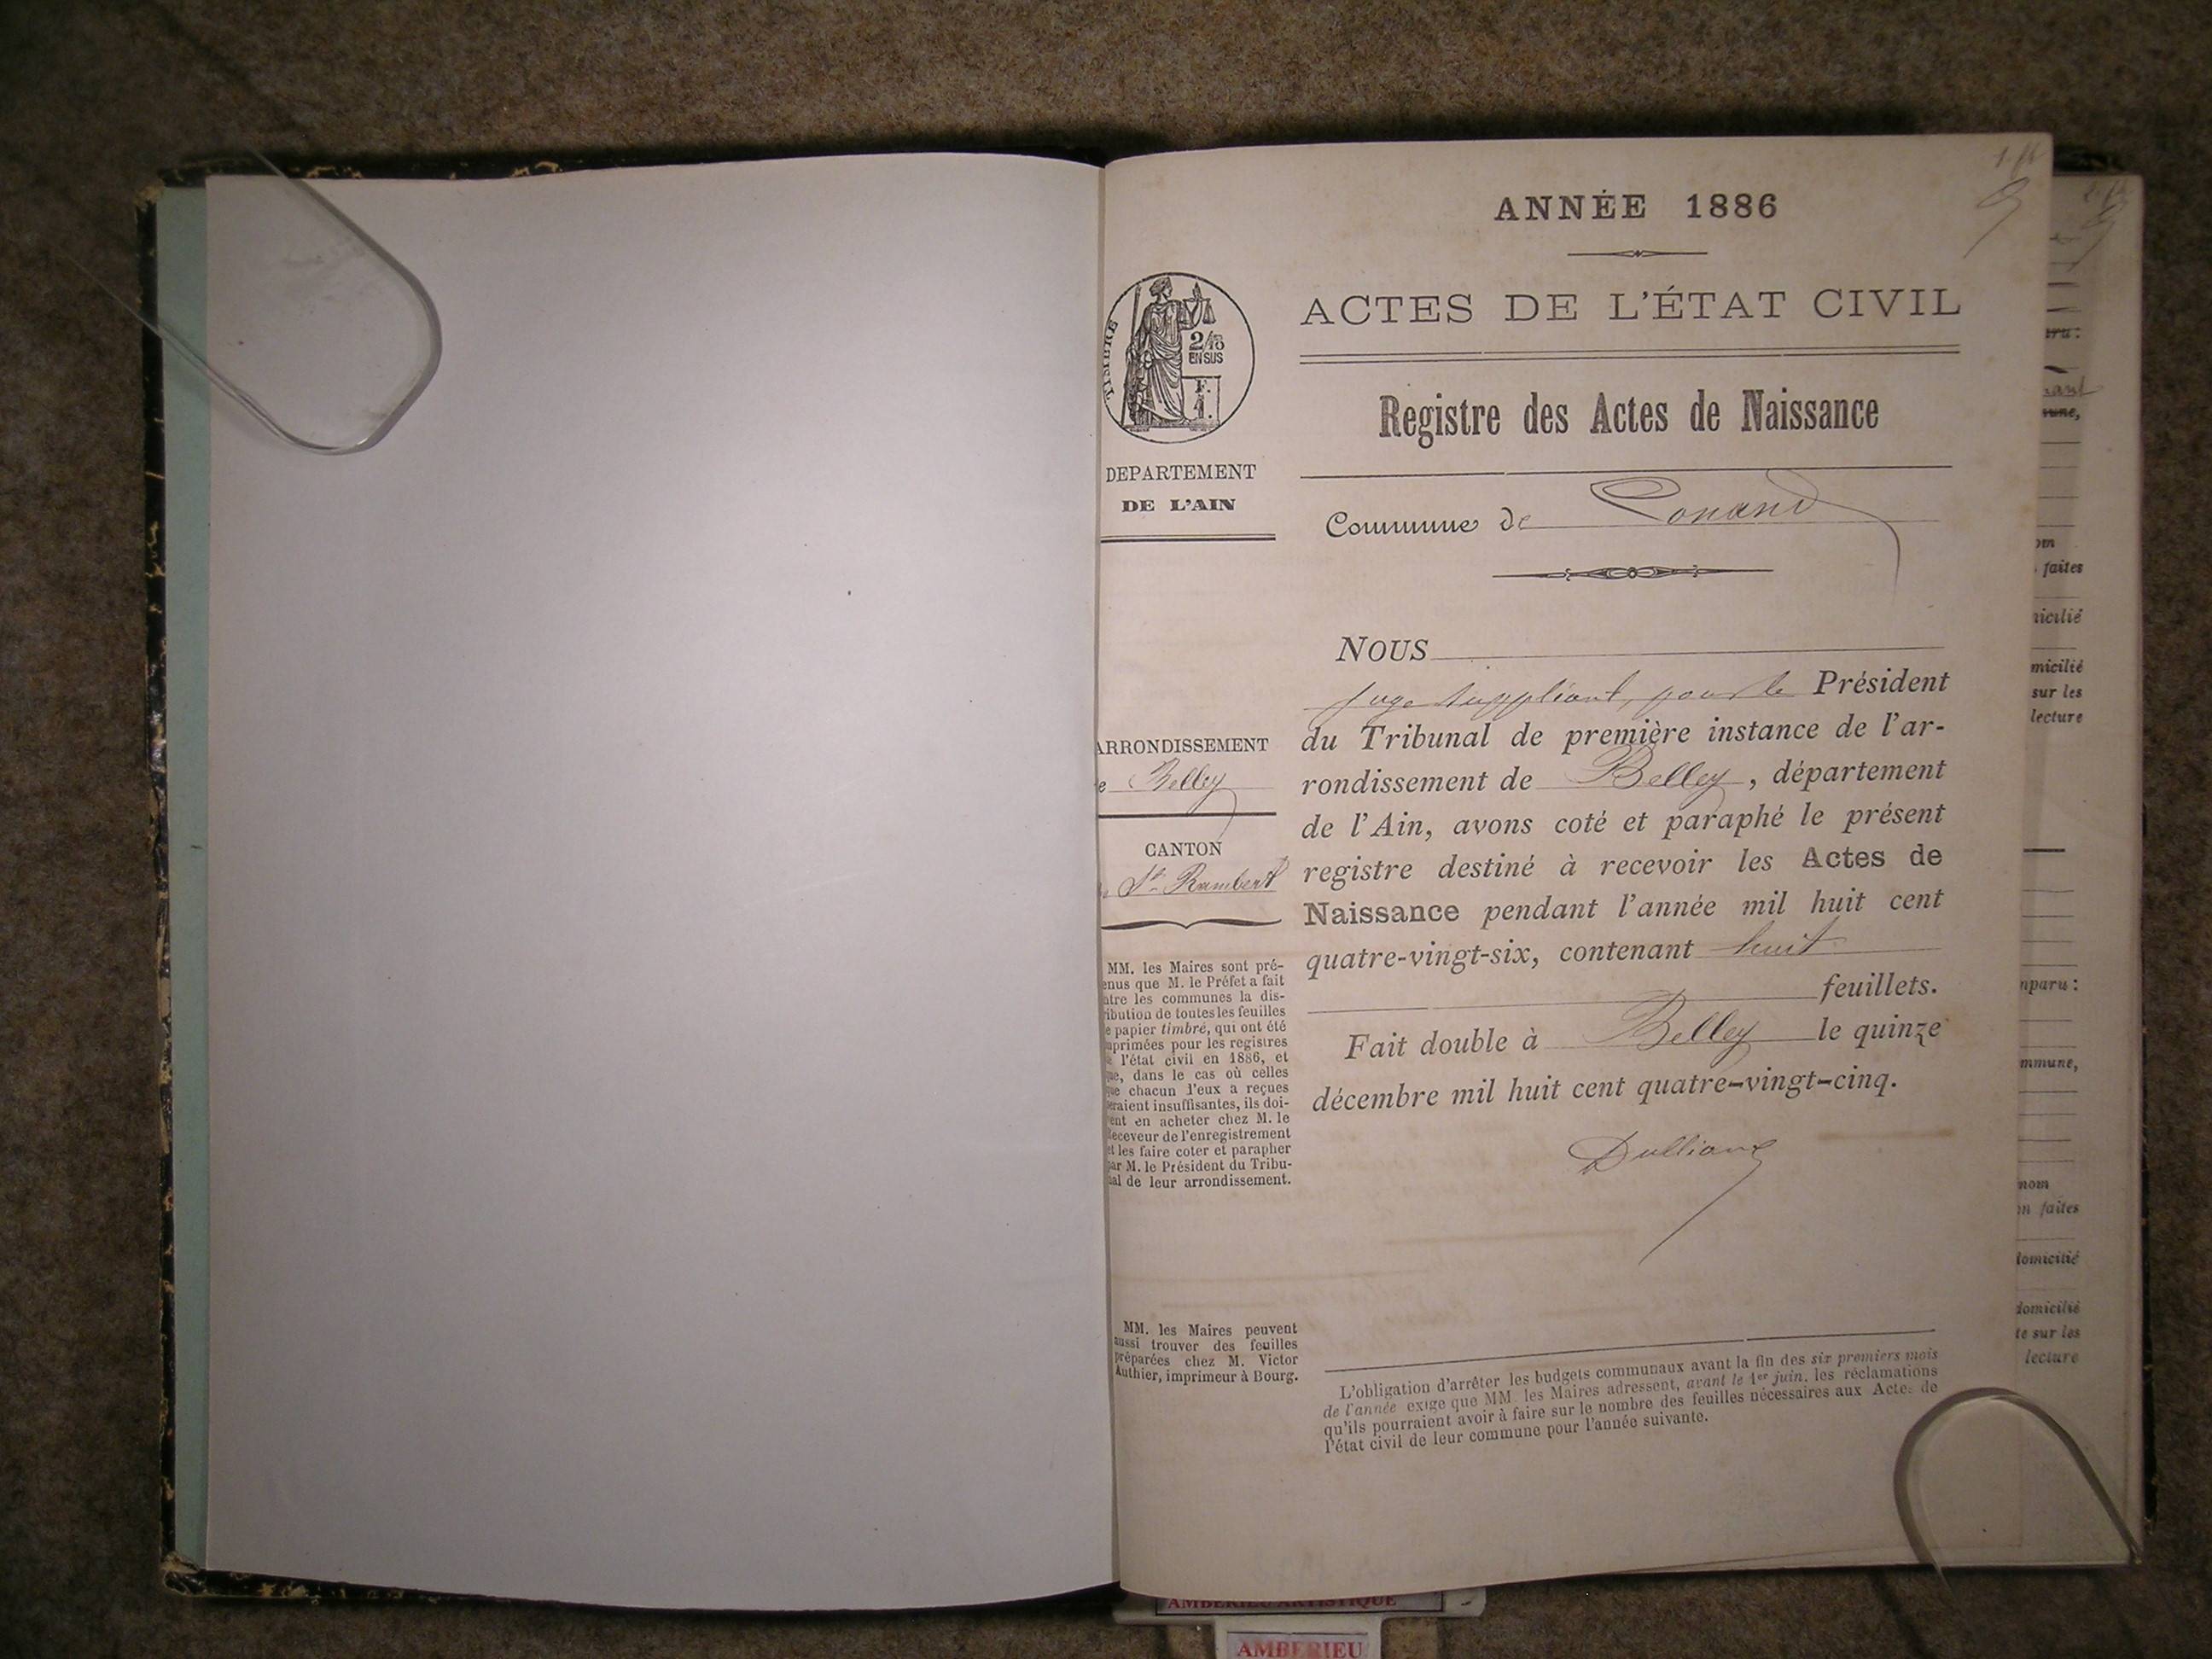 ANNÉE 1886
ACTES DE L'ÉTAT CIVIL
Registre des Actes de Naissance
Commune de Conand
TIMBRE
2/10
EN SUS
F.
1.
DEPARTEMENT
DE L'AIN
ARRONDISSEMENT
e Belley
CANTON
St Rambert
MM. les Maires sont pré-
enus que M. le Préfet a fait
ntre les communes la dis-
ribution de toutes les feuilles
e papier timbré, qui ont été
mprimées pour les registres
e l'état civil en 1886, et
ue, dans le cas où celles
que chacun l'eux a reçues
eraient insuffisantes, ils doi-
vent en acheter chez M. le
Receveur de l'enregistrement
et les faire coter et parapher
par M. le Président du Tribu-
nal de leur arrondissement.
MM. les Maires peuvent
aussi trouver des feuilles
préparées chez M. Victor
Authier, imprimeur à Bourg.
NOUS
juge suppléant, pour le Président
du Tribunal de première instance de l'ar-
rondissement de Belley, département
de l'Ain, avons coté et paraphé le présent
registre destiné à recevoir les Actes de
Naissance pendant l'année mil huit cent
quatre-vingt-six, contenant huit
feuillets.
Fait double à Belley le quinze
décembre mil huit cent quatre-vingt-cinq.
Dulliand
L'obligation d'arrêter les budgets communaux avant la fin des six premiers mois
de l'année exige que MM. les Maires adressent, avant le 1er juin, les réclamations
qu'ils pourraient avoir à faire sur le nombre des feuilles nécessaires aux Actes de
l'état civil de leur commune pour l'année suivante.
aru :
nant
mune,
om
faites
nicilié
micilié
sur les
lecture
nparu :
mmune,
nom
on faites
domicilié
domicilié
te sur les
lecture
AMBERIEU ARTISTIQUE
AMBERIEU